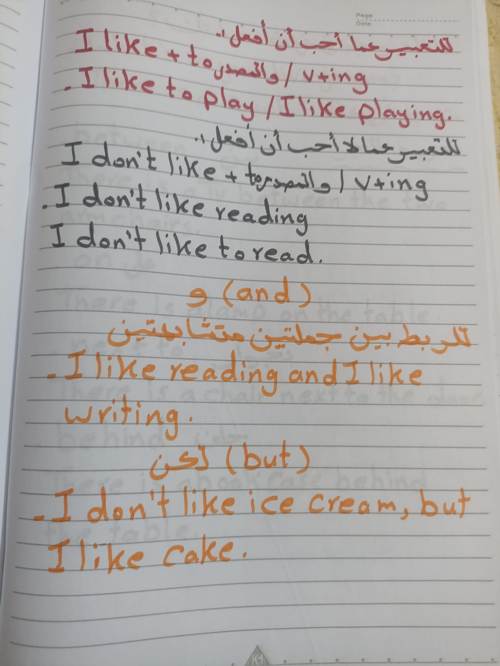 Page
Date
للتعبير عما أحب أن أفعل :-
I like + to والمصدر / v+ing
- I like to play / I like playing.
للتعبير عما لا أحب أن أفعل :-
I don't like + to والمصدر / v+ing
- I don't like reading
I don't like to read.
و (and)
للربط بين جملتين متشابهتين
- I like reading and I like
writing.
لكن (but)
- I don't like ice cream, but
I like cake.